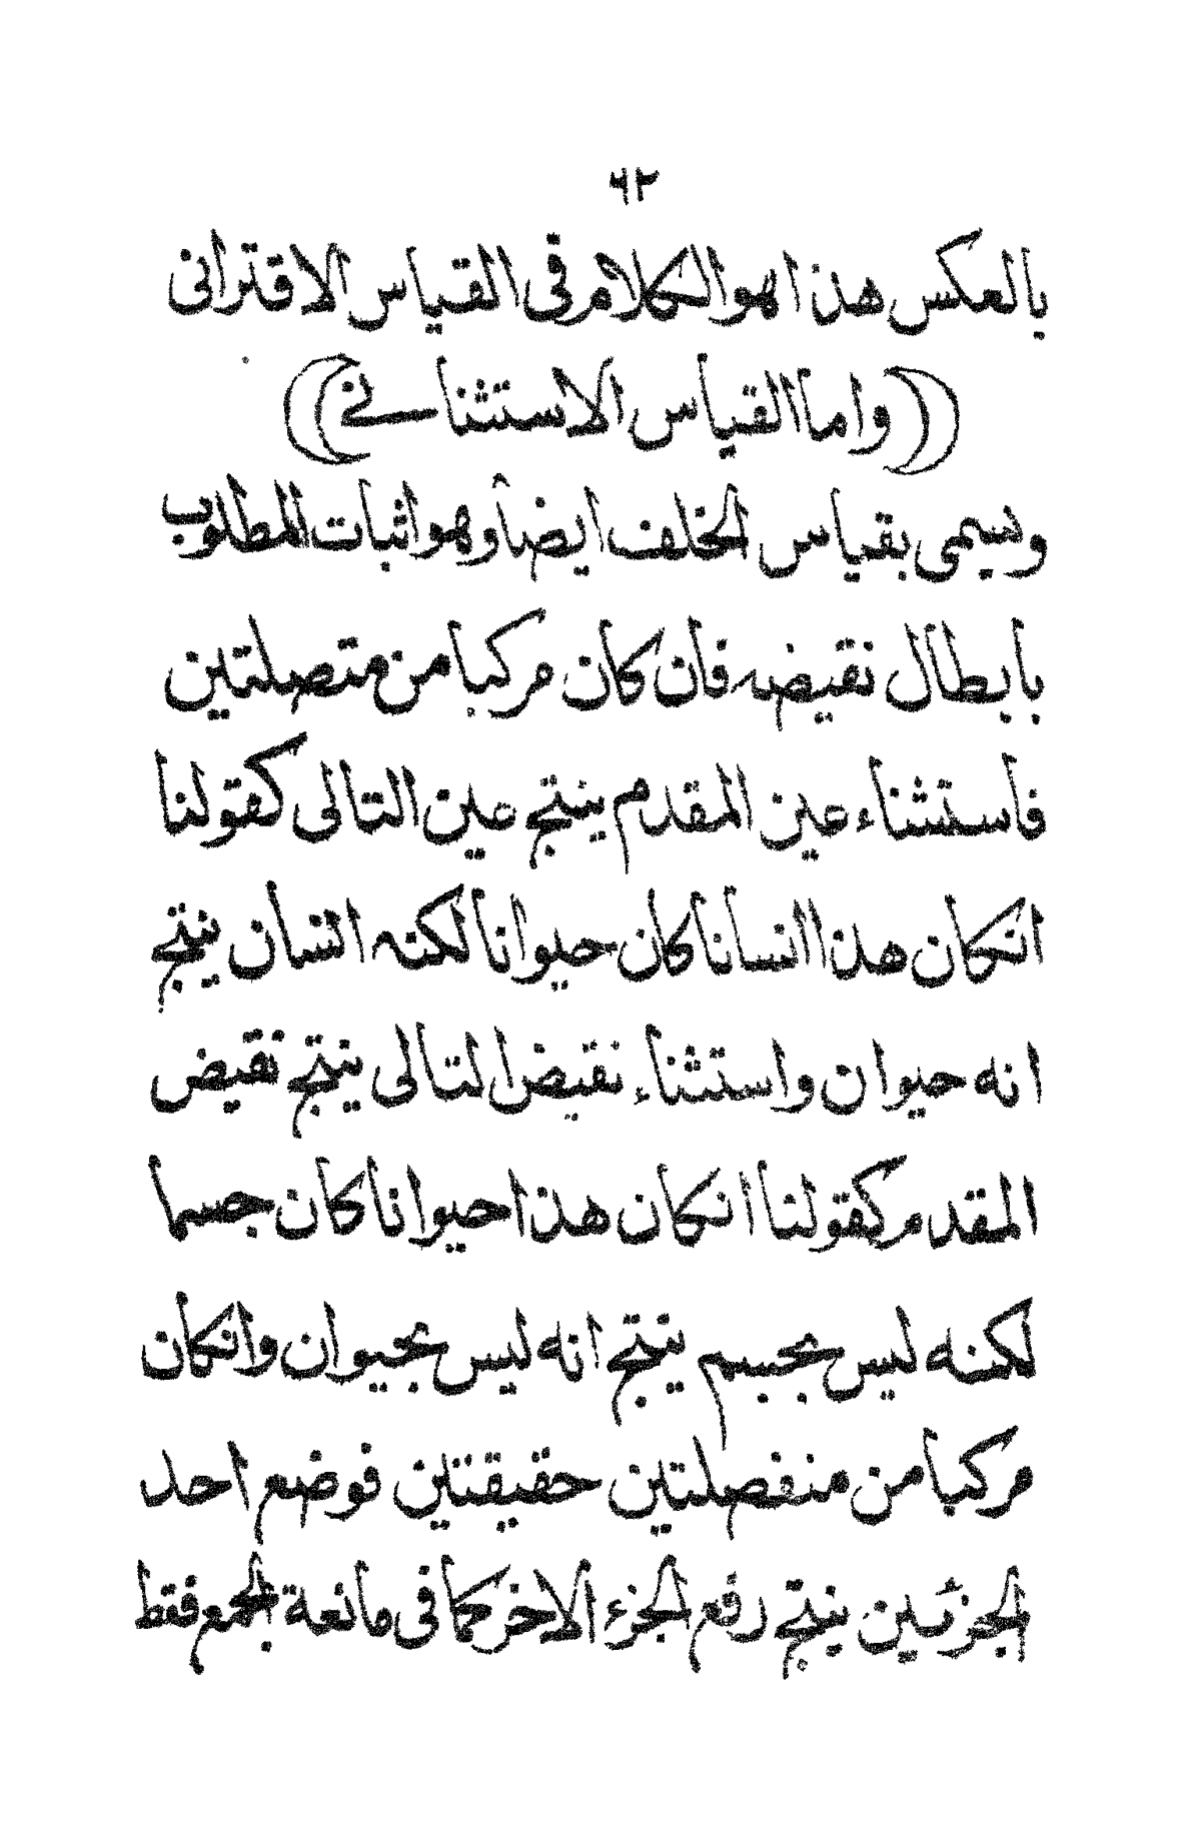 ٦٢
بالعكس هذا هو الكلام فى القياس الاقترانى
((واما القياس الاستثنائى))
ويسمى بقياس الخلف ايضاً وهو اثبات المطلوب
بابطال نقيضه فان كان مركبا من متصلتين
فاستثناء عين المقدم ينتج عين التالى كقولنا
انكان هذا انسانا كان حيوانا لكنه انسان ينتج
انه حيوان واستثناء نقيض التالى ينتج نقيض
المقدم كقولنا انكان هذا حيوانا كان جسما
لكنه ليس بجسم ينتج انه ليس بحيوان وانكان
مركبا من منفصلتين حقيقتين فوضع احد
الجزئين ينتج رفع الجزء الاخر كما فى مانعة الجمع فقط